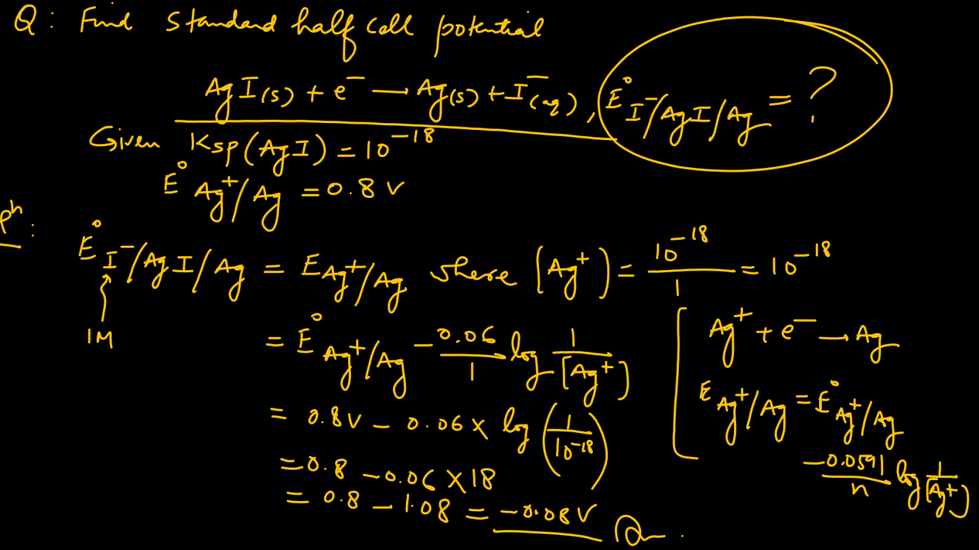 Q: Find standard half cell potential
AgI(s) + e⁻ → Ag(s) + I⁻(aq), E° I⁻/AgI/Ag = ?
Given Ksp(AgI) = 10⁻¹⁸
E° Ag⁺/Ag = 0.8 V
pʰ:
E° I⁻/AgI/Ag = E Ag⁺/Ag where [Ag⁺] = 10⁻¹⁸/1 = 10⁻¹⁸
1M
= E° Ag⁺/Ag - 0.06/1 log 1/[Ag⁺]
= 0.8V - 0.06 × log (1/10⁻¹⁸)
= 0.8 - 0.06 × 18
= 0.8 - 1.08 = -0.08V
Ag⁺ + e⁻ → Ag
E Ag⁺/Ag = E° Ag⁺/Ag
-0.0591/n log 1/[Ag⁺]